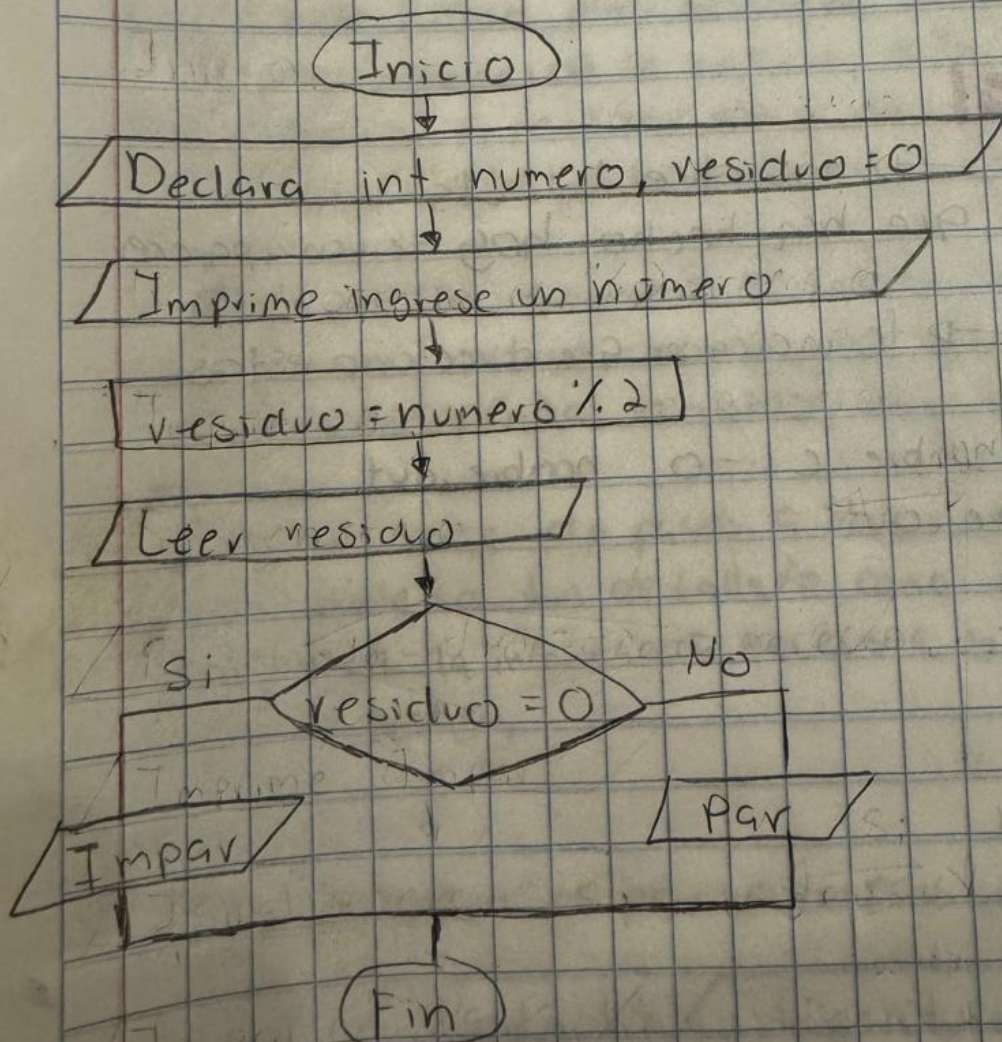 Inicio
Declara int numero, residuo = 0
Imprime ingrese un número
residuo = numero % 2
Leer residuo
Si
No
residuo = 0
Impar
Par
Fin